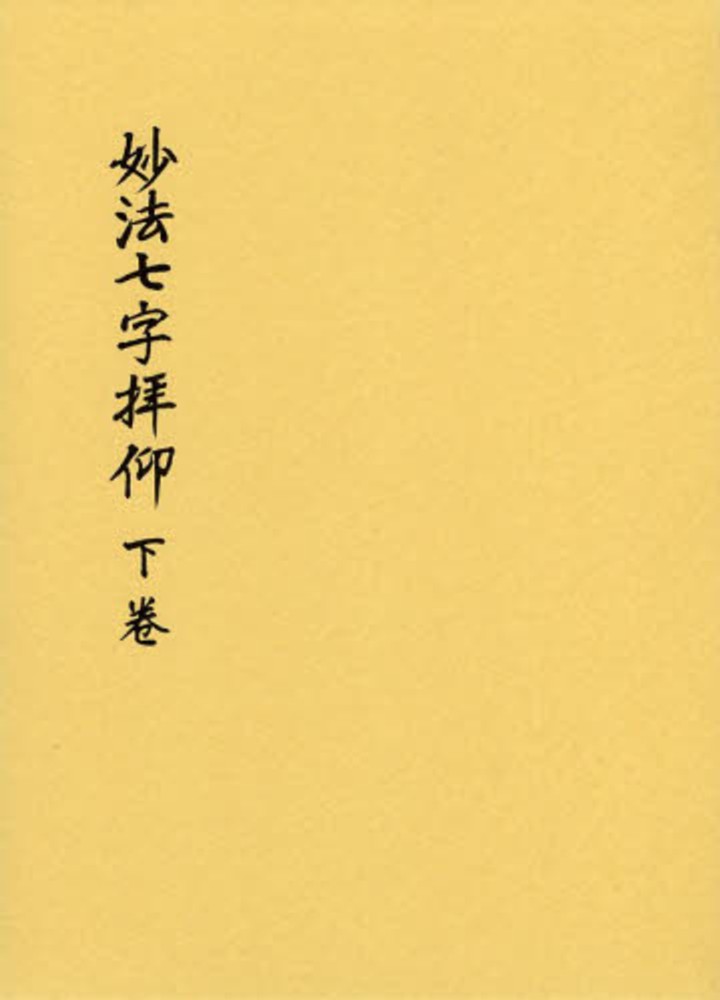 妙法七字拝仰 下巻